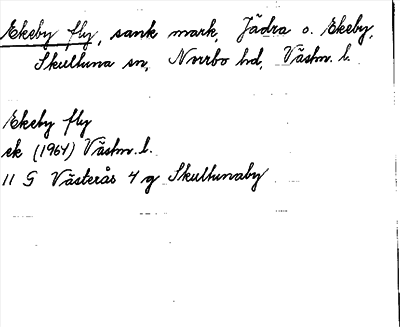 Ekeby fly, sank mark, Jädra o. Ekeby,
Skultuna sn, Norrbo hd, Västm. l.
Ekeby fly
ek (1964) Västm. l.
11 G Västerås 4 g Skultunaby